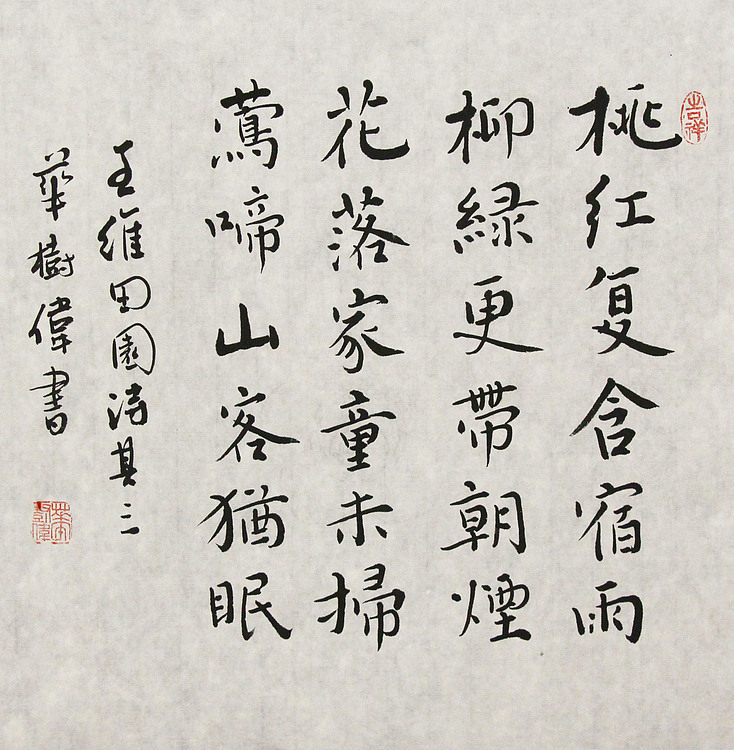 桃红复含宿雨
柳緑更帶朝煙
花落家童未掃
鶯啼山客猶眠
王維田園诗其三
華樹偉書
吉祥
華樹偉